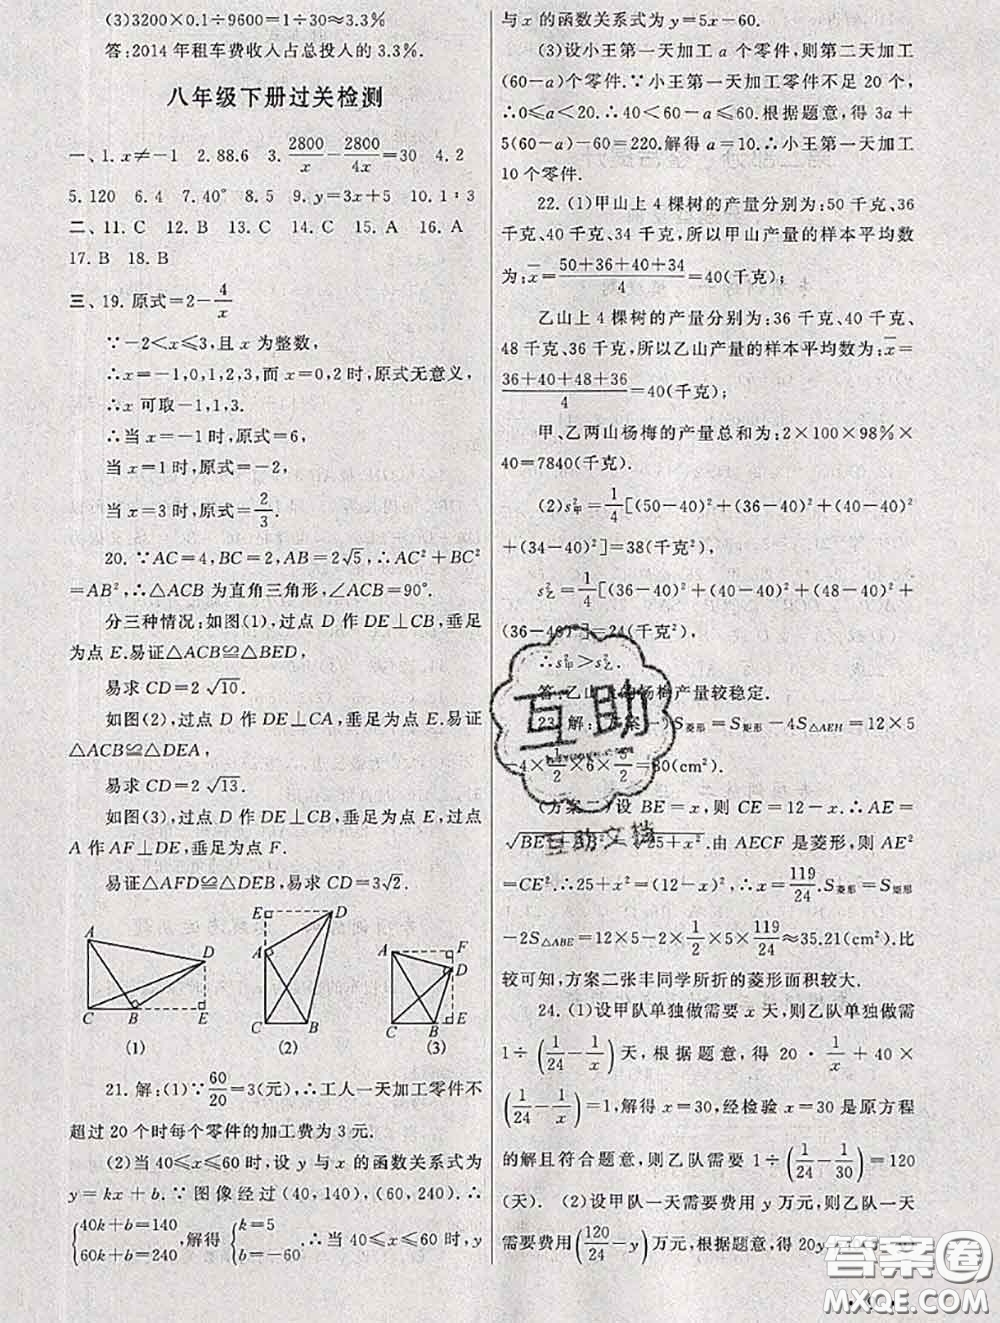 (3)3200×0.1÷9600=1÷30≈3.3%
答:2014年租车费收入占总投入的3.3%.
八年级下册过关检测
一、1. x≠-1 2. 88.6 3. 2800/x-2800/4x=30 4. 2
5. 120 6. 4 7. 40° 8. 5 9. y=3x+5 10. 1∶3
二、11. C 12. B 13. C 14. C 15. A 16. A
17. B 18. B
三、19. 原式=2-4/x
∵-2<x≤3,且x为整数,
∴x=-1,0,1,2,3,而x=0,2时,原式无意义,
∴x可取-1,1,3.
∴当x=-1时,原式=6,
当x=1时,原式=-2,
当x=3时,原式=2/3.
20. ∵AC=4,BC=2,AB=2√5,∴AC²+BC²
=AB²,∴△ACB为直角三角形,∠ACB=90°.
分三种情况:如图(1),过点D作DE⊥CB,垂足
为点E.易证△ACB≌△BED,
易求CD=2√10.
如图(2),过点D作DE⊥CA,垂足为点E.易证
△ACB≌△DEA,
易求CD=2√13.
如图(3),过点D作DE⊥CB,垂足为点E,过点
A作AF⊥DE,垂足为点F.
易证△AFD≌△DEB,易求CD=3√2.
A D C B E
(1)
E D A C B
(2)
A F D C B E
(3)
21. 解:(1)∵60/20=3(元),∴工人一天加工零件不
超过20个时每个零件的加工费为3元.
(2)当40≤x≤60时,设y与x的函数关系式为
y=kx+b.∵图像经过(40,140),(60,240).∴
{40k+b=140 60k+b=240,解得{k=5 b=-60.∴当40≤x≤60时,y
与x的函数关系式为y=5x-60.
(3)设小王第一天加工a个零件,则第二天加工
(60-a)个零件.∵小王第一天加工零件不足20个,
∴0≤a<20.∴40<60-a≤60.根据题意,得3a+
5(60-a)-60=220.解得a=10.∴小王第一天加工
10个零件.
22. (1)甲山上4棵树的产量分别为:50千克、36
千克、40千克、34千克,所以甲山产量的样本平均数
为:x̄=(50+36+40+34)/4=40(千克);
乙山上4棵树的产量分别为:36千克、40千克、
48千克、36千克,所以乙山产量的样本平均数为:x̄=
(36+40+48+36)/4=40(千克);
甲、乙两山杨梅的产量总和为:2×100×98%×
40=7840(千克).
(2)s²甲=1/4[(50-40)²+(36-40)²+(40-40)²
+(34-40)²]=38(千克²),
s²乙=1/4[(36-40)²+(40-40)²+(48-40)²+
(36-40)²]=24(千克²),
∴s²甲>s²乙.
答:乙山上的杨梅产量较稳定.
23. 解:(方案一)S菱形=S矩形-4S△AEH=12×5
-4×1/2×6×5/2=30(cm²).
(方案二)设BE=x,则CE=12-x.∴AE=
√BE²+AB²=√25+x².由AECF是菱形,则AE²
=CE².∴25+x²=(12-x)².∴x=119/24.S菱形=S矩形
-2S△ABE=12×5-2×1/2×5×119/24≈35.21(cm²).比
较可知,方案二张丰同学所折的菱形面积较大.
24. (1)设甲队单独做需要x天,则乙队单独做需
1÷(1/24-1/x)天,根据题意,得20·1/x+40×
(1/24-1/x)=1,解得x=30,经检验x=30是原方程
的解且符合题意,则乙队需要1÷(1/24-1/30)=120
(天). (2)设甲队一天需要费用y万元,则乙队一天
需要费用(120/24-y)万元,根据题意,得20y
互助
互助文档
答案圈
MXQE.COM